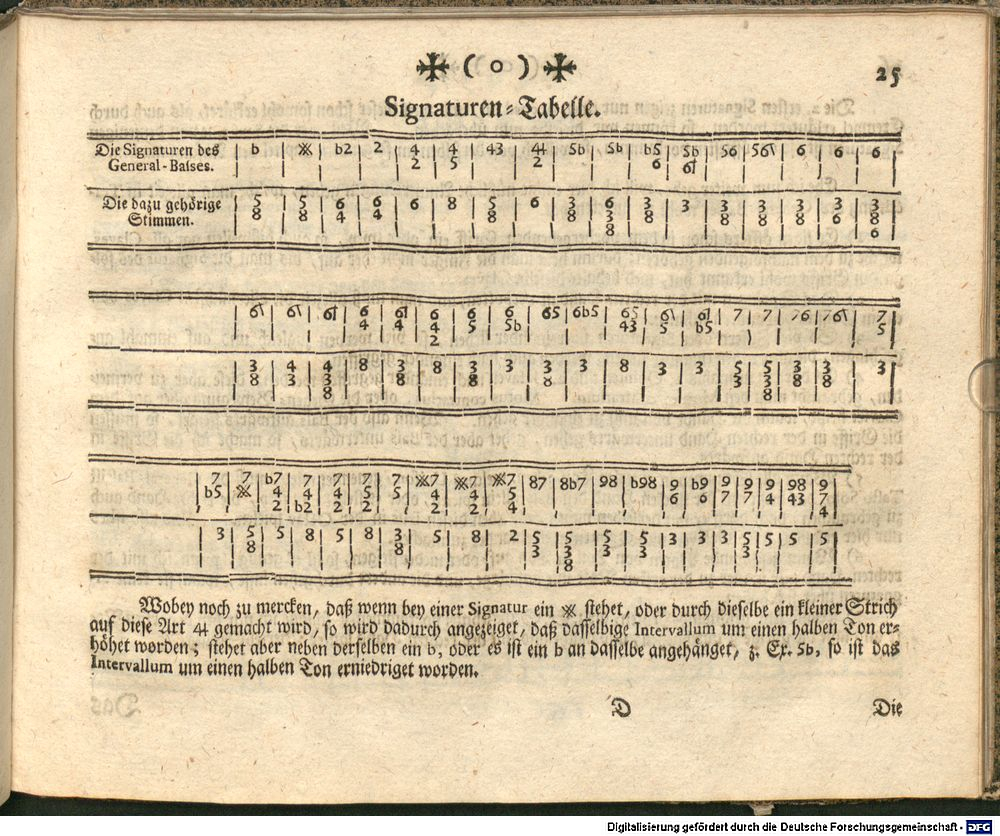 ( o )
25
Signaturen-Tabelle.
Die Signaturen des General-Basses. | b | ※ | b2 | 2 | 4 2 | 4 5 | 43 | 44 2 | 5b | 5b | b5 6 | 5b | 56 | 6 | 6 | 6
Die dazu gehörige Stimmen. | 5 8 | 5 8 | 6 4 | 6 4 | 6 | 8 | 5 8 | 6 | 3 8 | 6 3 8 | 3 8 | 3 | 3 8 | 3 8 | 3 8 | 3 6 | 3 8 6
6 4 | 6 4 2 | 6 5 | 6 5b | 65 | 6b5 | 65 43 | 7 | 7 | 76 | 7 5
3 8 | 4 3 | 4 3 8 | 8 | 3 8 | 8 | 3 8 | 3 | 3 8 | 3 | 8 | 3 | 3 | 5 3 | 5 3 8 | 3 8 | 3 8 | 3
7 b5 | 7 ※ | b7 4 2 | 7 4 b2 | 7 4 2 | 7 5 2 | 7 5 | ※7 4 2 | ※7 4 2 | ※7 5 4 | 87 | 8b7 | 98 | b98 | 9 6 | b9 6 | 9 7 | 9 7 | 9 4 | 98 43 | 9 7 4
3 | 5 8 | 5 | 8 | 5 | 8 | 3 8 | 5 | 8 | 2 | 5 3 | 5 3 8 | 5 3 | 5 3 | 3 | 3 | 3 | 5 3 | 5 | 5 | 5
Wobey noch zu mercken, daß wenn bey einer Signatur ein ※ stehet, oder durch dieselbe ein kleiner Strich
auf diese Art 44 gemacht wird, so wird dadurch angezeiget, daß dasselbige Intervallum um einen halben Ton er-
höhet worden; stehet aber neben derselben ein b, oder es ist ein b an dasselbe angehänget, z. Ex. 5b, so ist das
Intervallum um einen halben Ton erniedriget worden.
D
Die
Digitalisierung gefördert durch die Deutsche Forschungsgemeinschaft - DFG